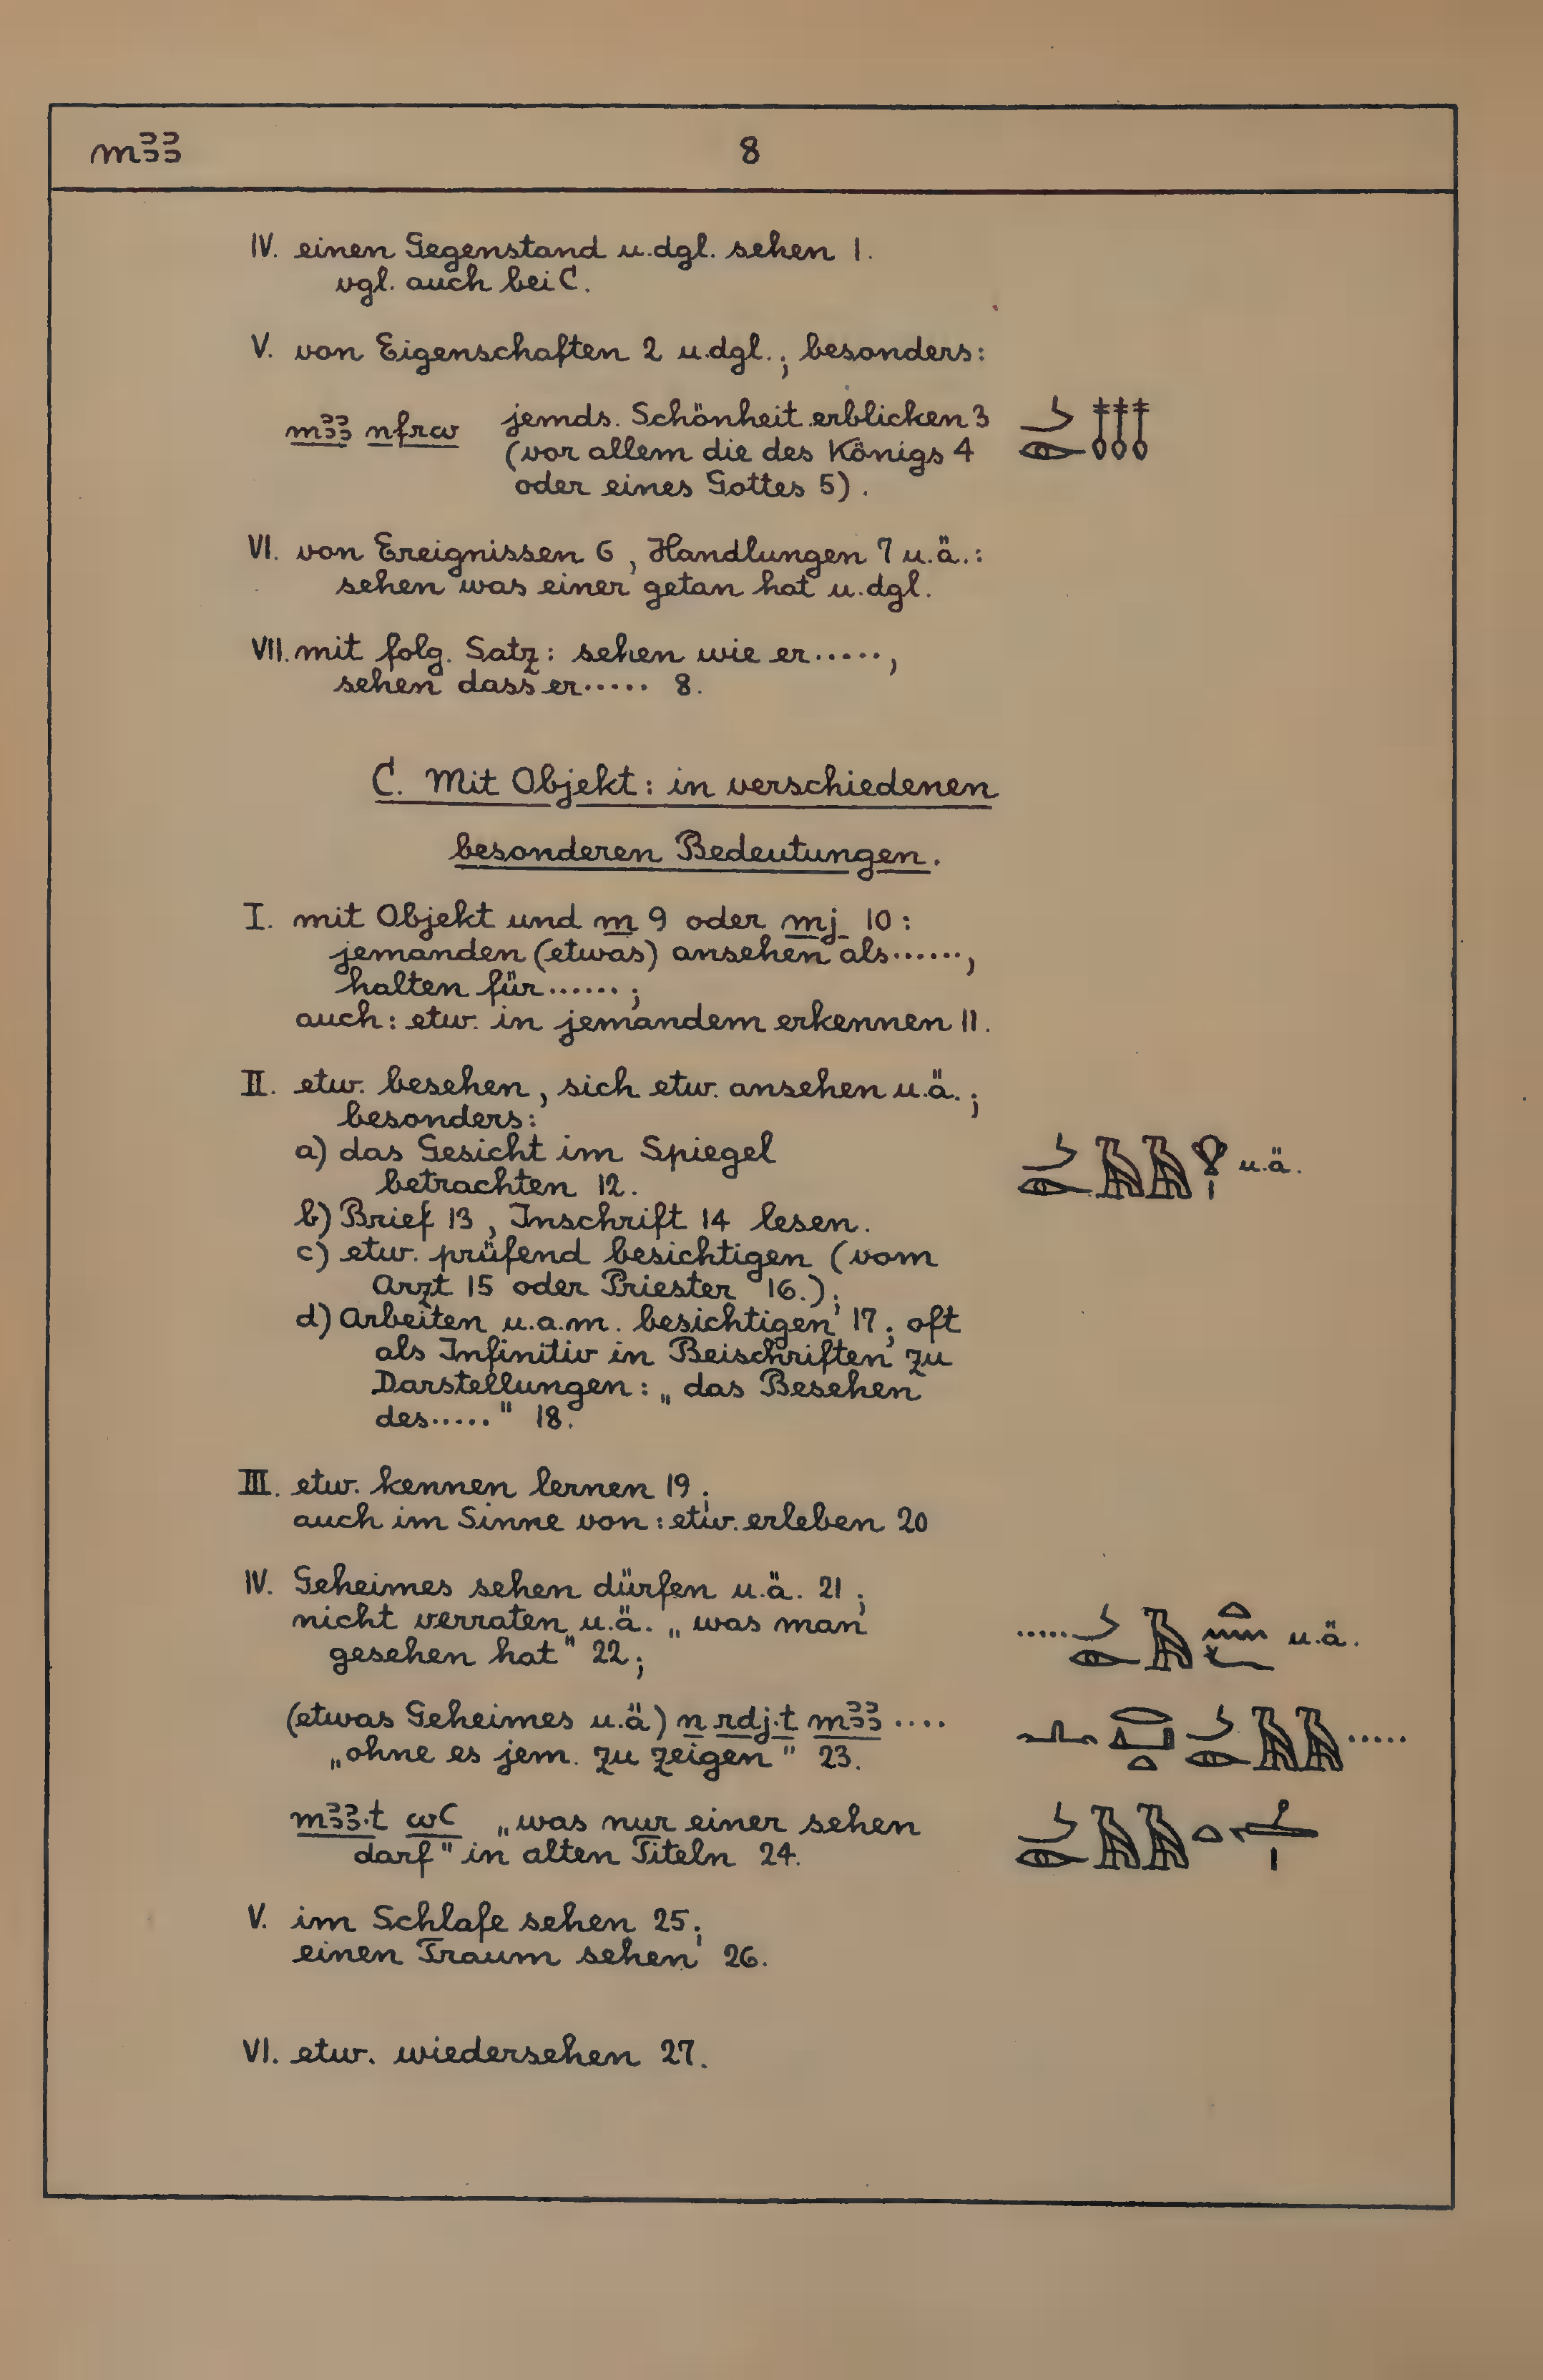 mꜣꜣ 8
IV. einen Gegenstand u.dgl. sehen 1.
vgl. auch bei C.
V. von Eigenschaften 2 u.dgl.; besonders:
mꜣꜣ nfrw jemds. Schönheit erblicken 3 𓌳𓁹𓄤𓄤𓄤
(vor allem die des Königs 4
oder eines Gottes 5).
VI. von Ereignissen 6, Handlungen 7 u.ä.:
sehen was einer getan hat u.dgl.
VII. mit folg. Satz: sehen wie er·····,
sehen dass er····· 8.
C. Mit Objekt: in verschiedenen
besonderen Bedeutungen.
I. mit Objekt und m 9 oder mj 10:
jemanden (etwas) ansehen als······,
halten für······;
auch: etw. in jemandem erkennen 11.
II. etw. besehen, sich etw. ansehen u.ä.;
besonders:
a) das Gesicht im Spiegel 𓌳𓁹𓄿𓄿𓁷𓏤 u.ä.
betrachten 12.
b) Brief 13, Inschrift 14 lesen.
c) etw. prüfend besichtigen (vom
Arzt 15 oder Priester 16.);
d) Arbeiten u.a.m. besichtigen 17; oft
als Infinitiv in Beischriften zu
Darstellungen: „das Besehen
des·····" 18.
III. etw. kennen lernen 19;
auch im Sinne von: etw. erleben 20
IV. Geheimes sehen dürfen u.ä. 21;
nicht verraten u.ä. „was man ·····𓌳𓁹𓄿𓏏𓈖𓆑 u.ä.
gesehen hat" 22;
(etwas Geheimes u.ä) n rdj·t mꜣꜣ ···· 𓂜𓂋𓂞𓏏𓌳𓁹𓄿𓄿·····
„ohne es jem. zu zeigen" 23.
mꜣꜣ·t wꜥ „was nur einer sehen 𓌳𓁹𓄿𓄿𓏏𓌡𓏤
darf" in alten Titeln 24.
V. im Schlafe sehen 25;
einen Traum sehen 26.
VI. etw. wiedersehen 27.